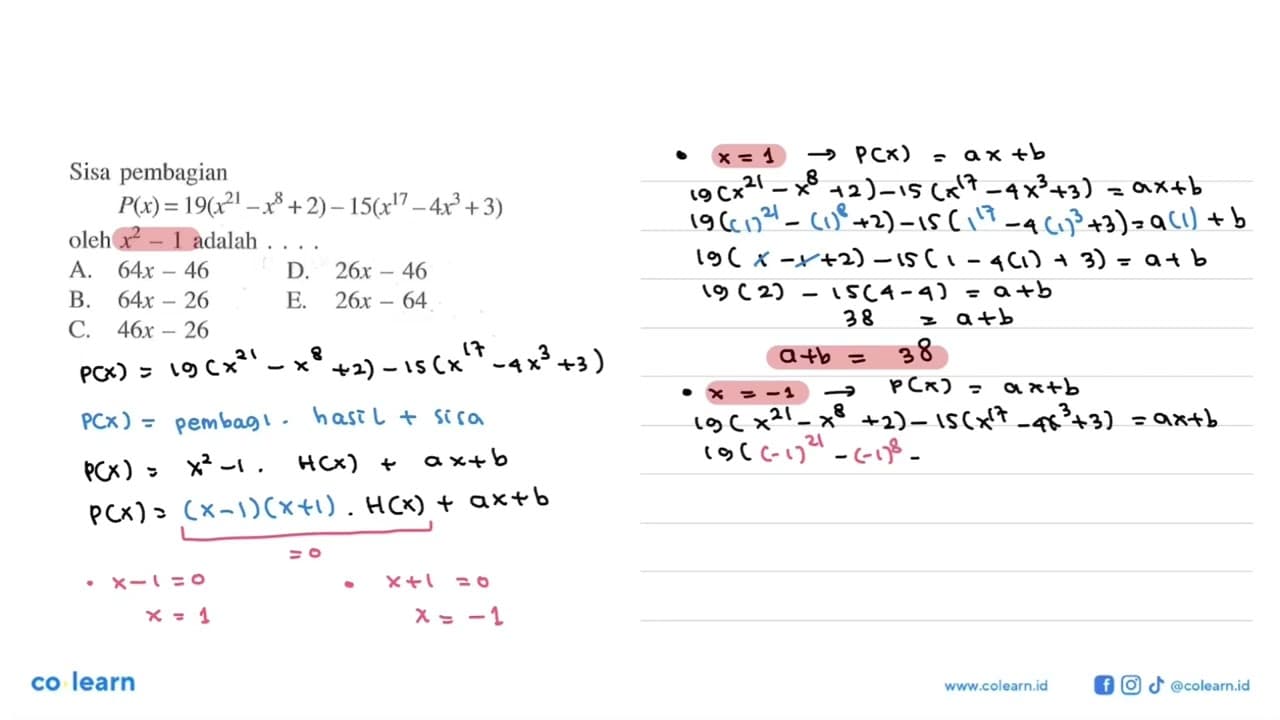 Sisa pembagian
P(x) = 19(x²¹ – x⁸ + 2) – 15(x¹⁷ – 4x³ + 3)
oleh x² – 1 adalah . . . .
A. 64x – 46 D. 26x – 46
B. 64x – 26 E. 26x – 64
C. 46x – 26
P(x) = 19(x²¹ - x⁸ +2) - 15(x¹⁷ - 4x³ +3)
P(x) = pembagi . hasil + sisa
P(x) = x²-1 . H(x) + ax+b
P(x) = (x-1)(x+1) . H(x) + ax+b
=0
• x-1=0 • x+1 =0
x = 1 x = -1
• x = 1 → P(x) = ax+b
19(x²¹ - x⁸ +2) - 15(x¹⁷ - 4x³+3) = ax+b
19((1)²¹ - (1)⁸ +2) - 15(1¹⁷ - 4(1)³ +3) = a(1) + b
19(1 - 1 +2) - 15(1 - 4(1) + 3) = a+b
19(2) - 15(4-4) = a+b
38 = a+b
a+b = 38
• x = -1 → P(x) = ax+b
19(x²¹ - x⁸ +2) - 15(x¹⁷ - 4x³+3) = ax+b
19((-1)²¹ - (-1)⁸ -
co learn
www.colearn.id @colearn.id